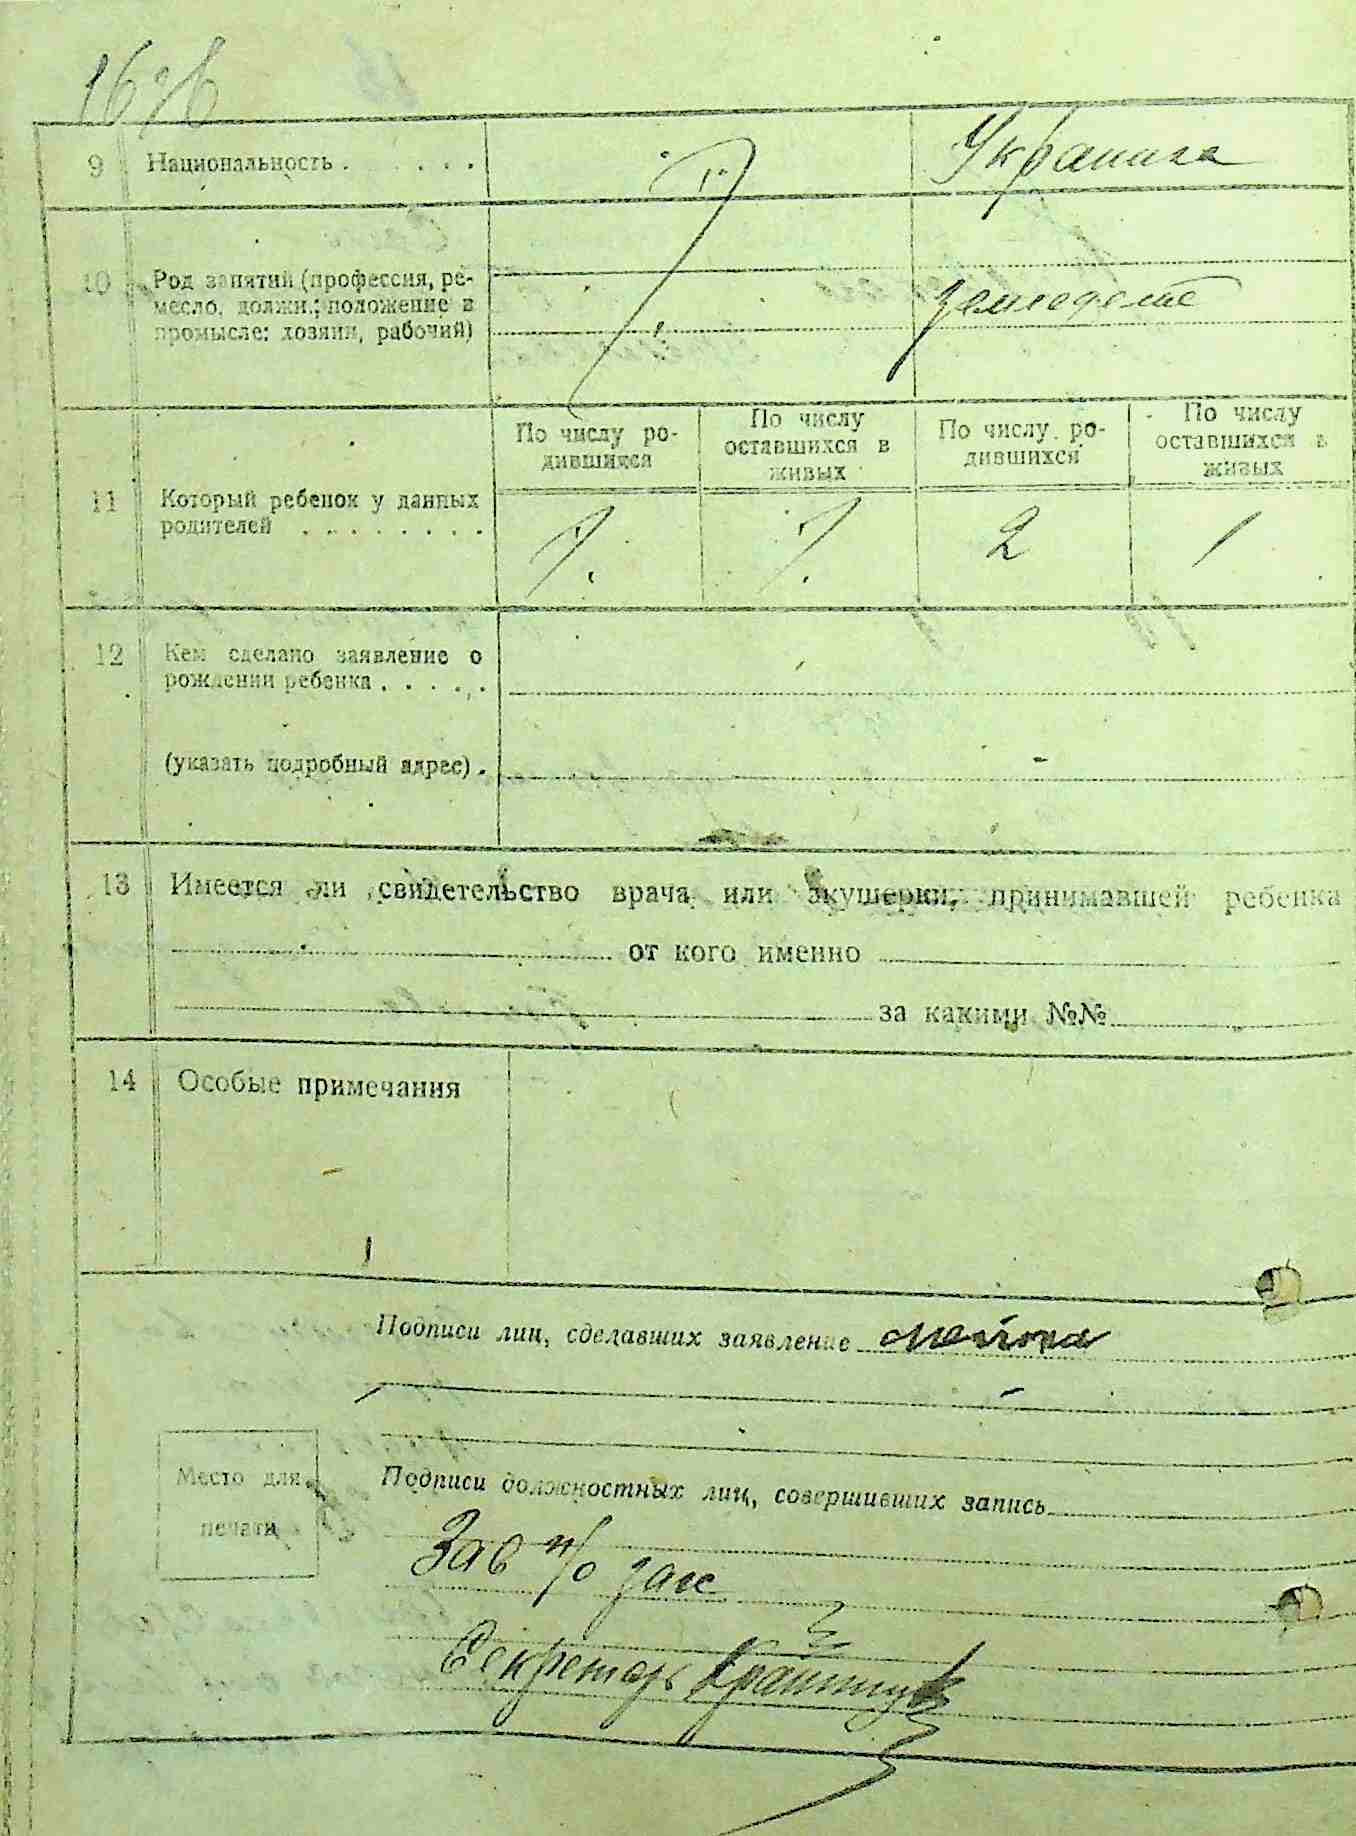 16 об
9 Национальность . . . . . Украинка
10 Род занятий (профессия, ре-
месло, должн.; положение в
промысле: хозяин, рабочий)
земледелие
По числу ро-
дившихся
По числу
оставшихся в
живых
По числу ро-
дившихся
По числу
оставшихся в
живых
11 Который ребенок у данных
родителей . . . . . . . . 2 1
12 Кем сделано заявление о
рождении ребенка . . . . .
(указать подробный адрес) .
13 Имеется ли свидетельство врача или акушерки, принимавшей ребенка
от кого именно
за какими №№
14 Особые примечания
Подписи лиц, сделавших заявление
Место для
печати
Подписи должностных лиц, совершивших запись
Зав п/о загс
Секретарь